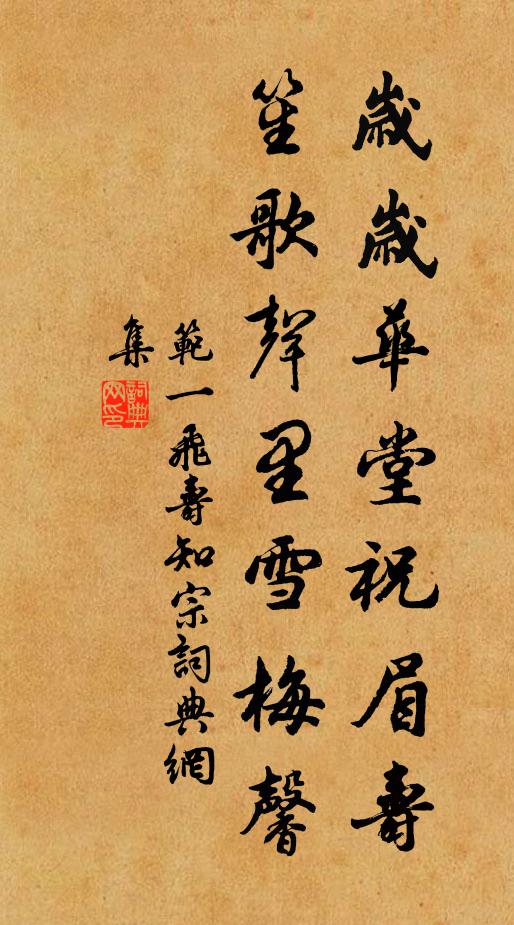 歲歲華堂祝眉壽
笙歌聲里雪梅馨
範一飛壽知宗詞典網
集
詞典網印